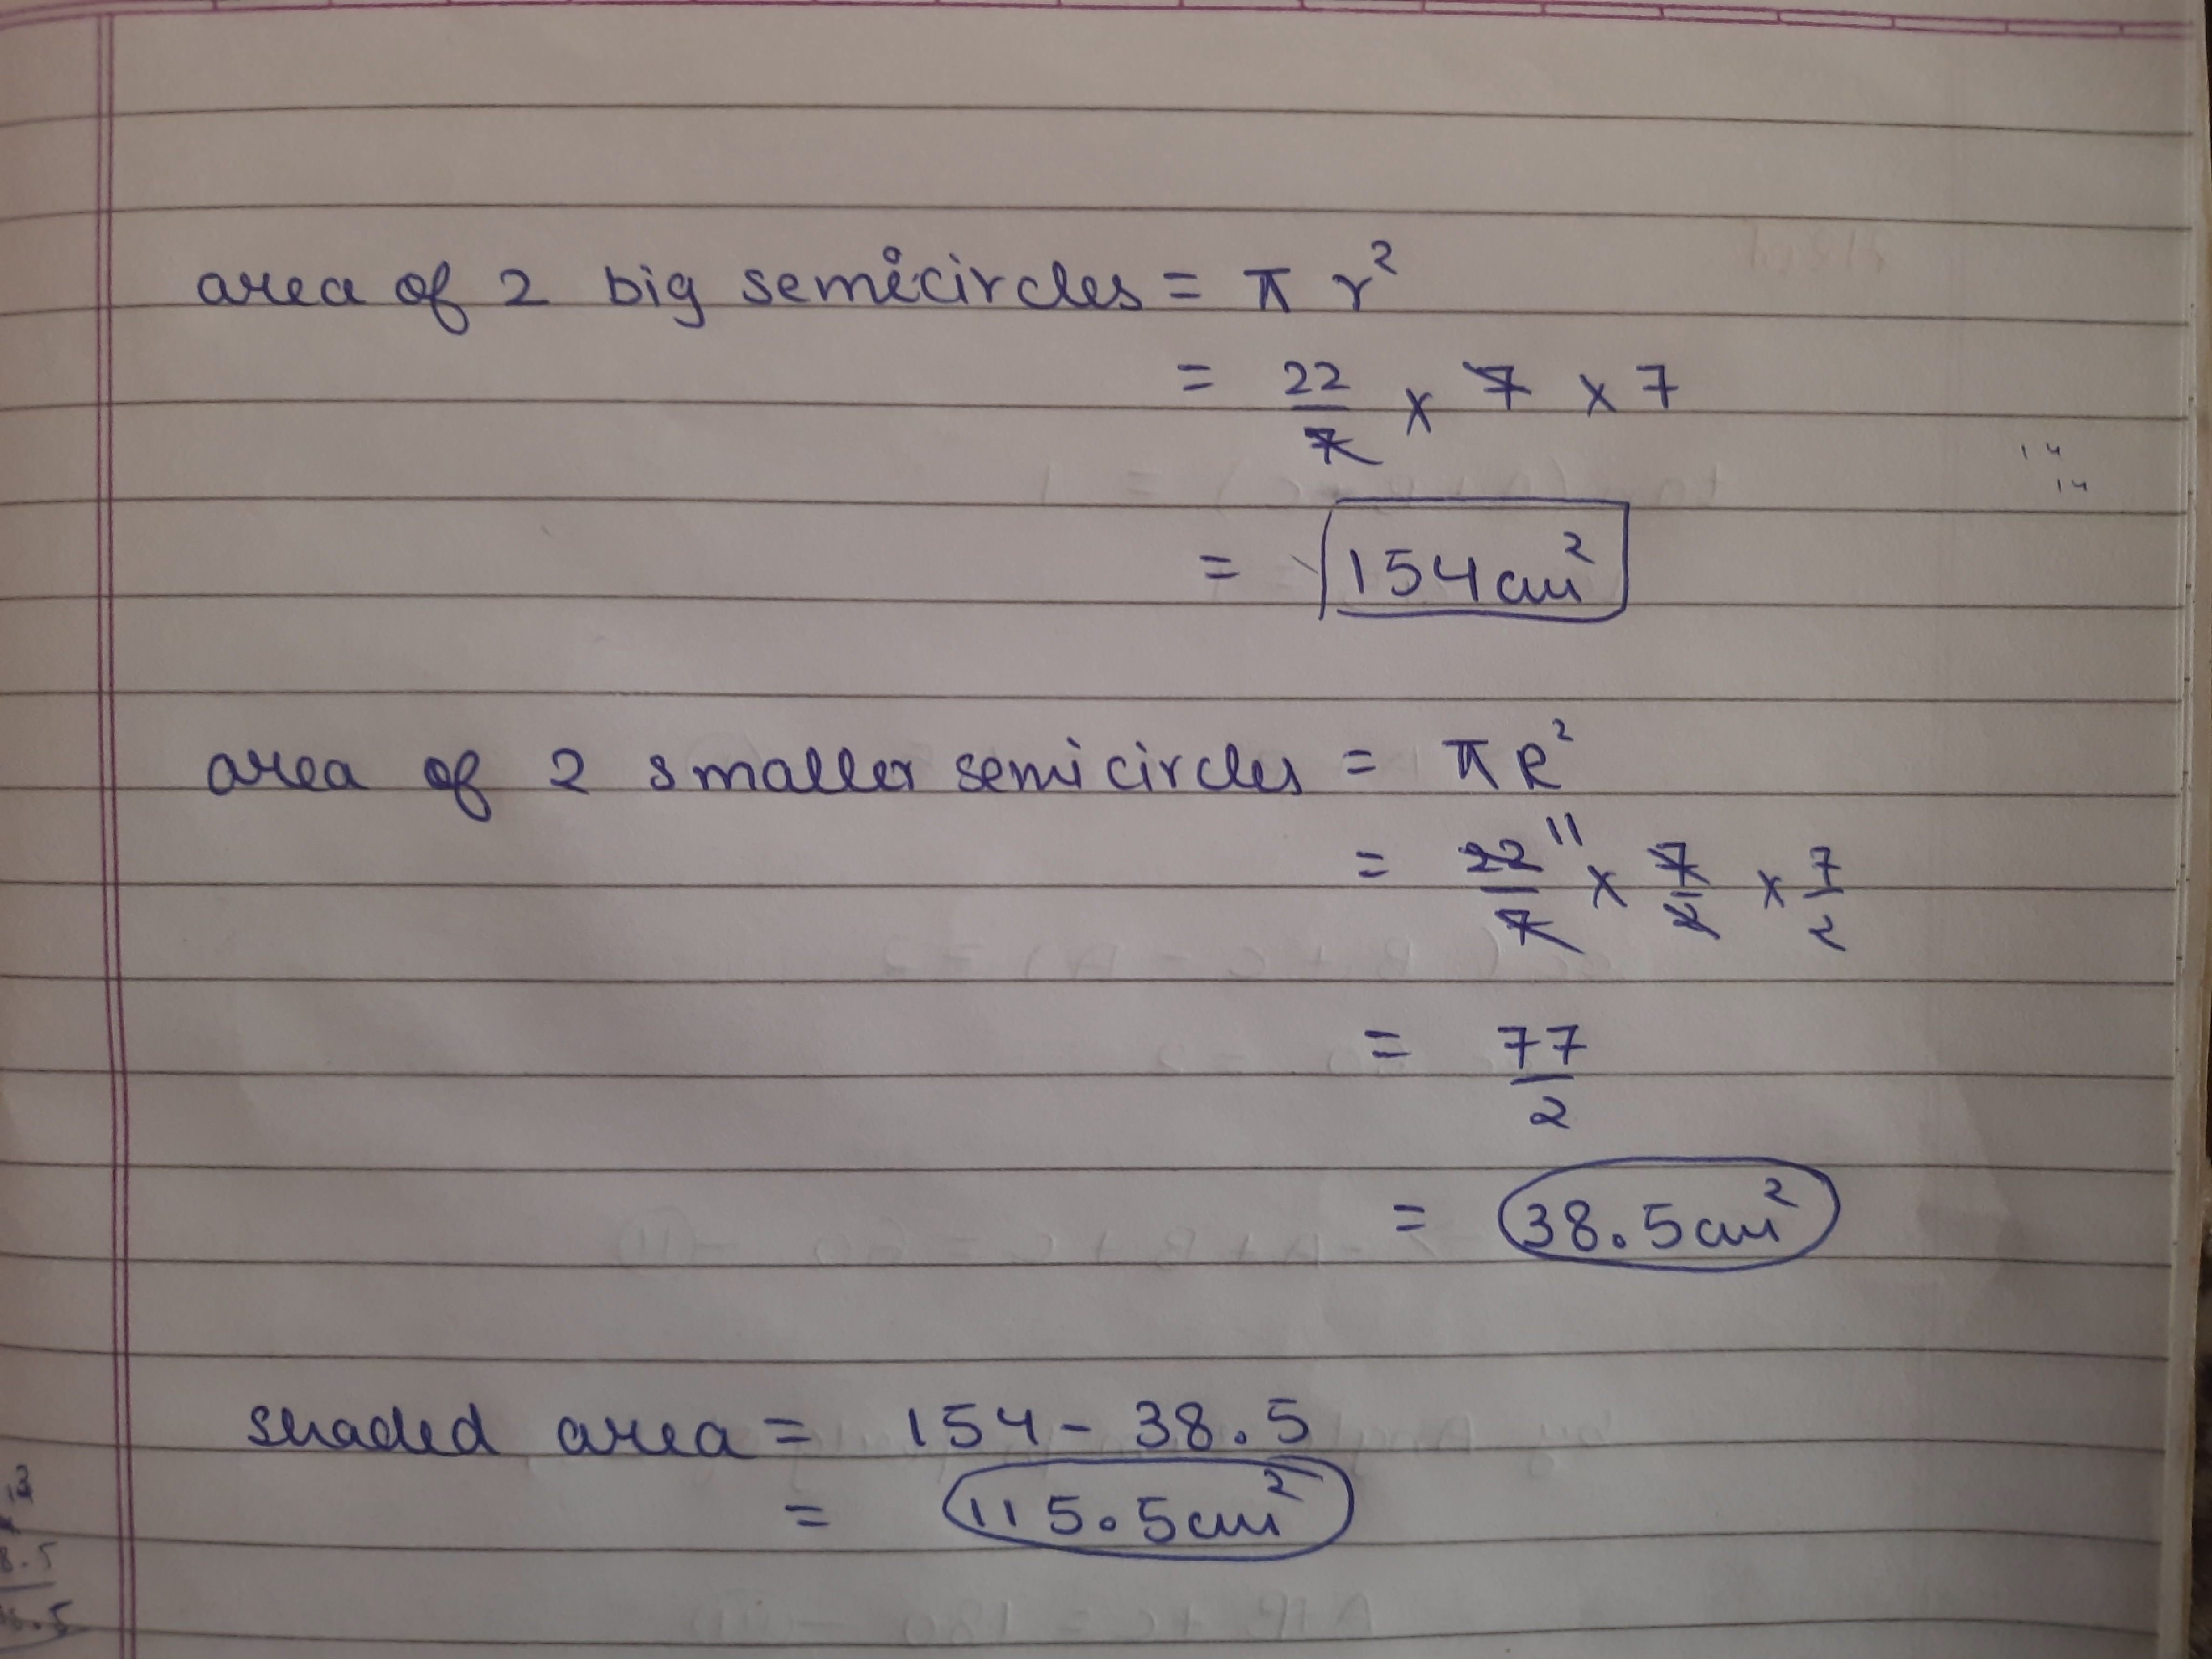 area of 2 big semicircles = π r²
= 22/7 × 7 × 7
14
14
= 154 cm²
area of 2 smaller semicircles = π R²
= 22/7 11 × 7/2 × 7/2
= 77/2
= 38.5 cm²
shaded area = 154 - 38.5
= 115.5 cm²